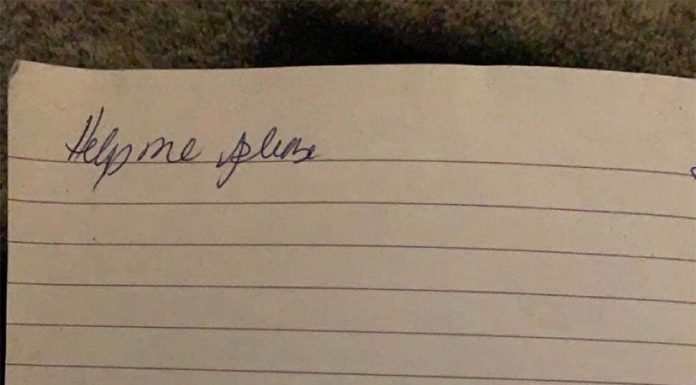 Help me please